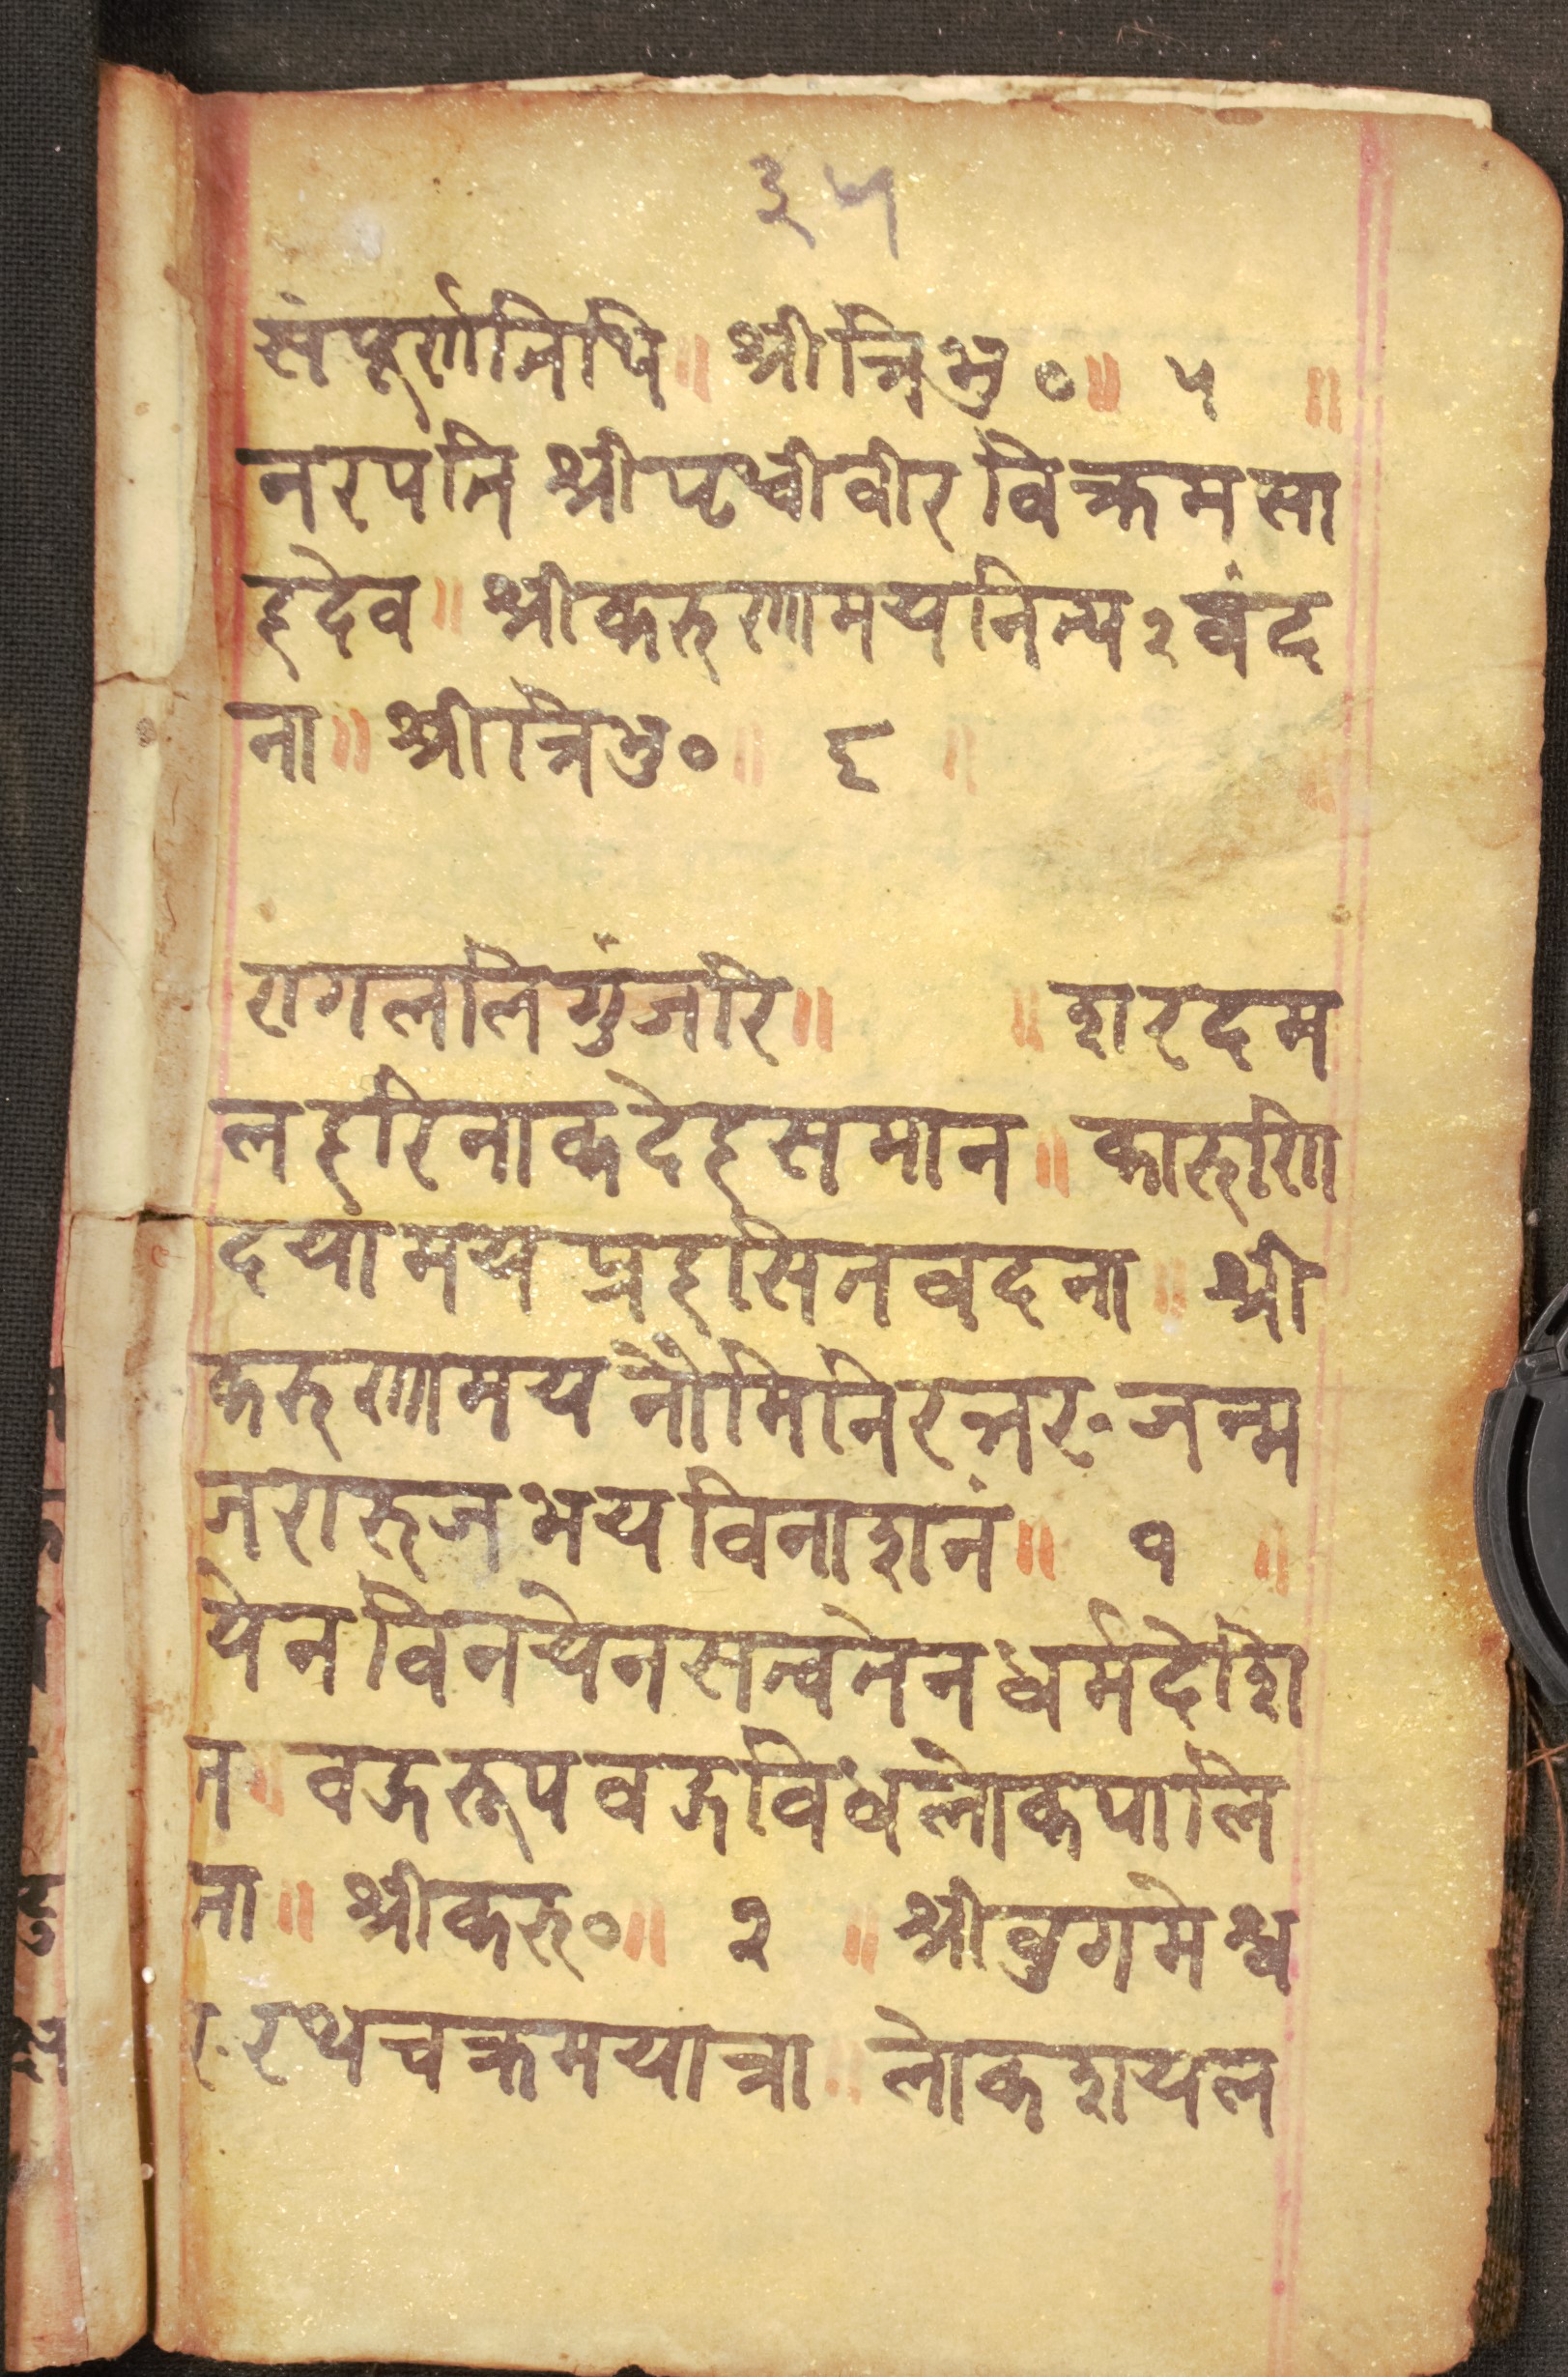 ३५
संपूर्णतिथि ॥ श्रीत्रिभु० ॥ ५ ॥
नरपति श्रीपृथ्वीवीर विक्रमसा
हदेव ॥ श्रीकरुणामयनित्य२ वंद
ना ॥ श्रीत्रिभु० ॥ ६ ॥
रागललितगुंजरि ॥ ॥ शरदम
लहरिनाकदेहसमान ॥ कारुणि
दयामयप्रहसितवदना ॥ श्री
करुणामय नौमिनिरन्तर. जन्म
जरारुजभयविनाशनं ॥ १ ॥
येनविनयेनसत्वतेनधर्मदेशि
त ॥ वज्ररूपवज्रविधलोकपालि
ता ॥ श्रीकरु० ॥ २ ॥ श्रीवुगमेश्व
र. रथचक्रमयात्रा ॥ लोकशयल